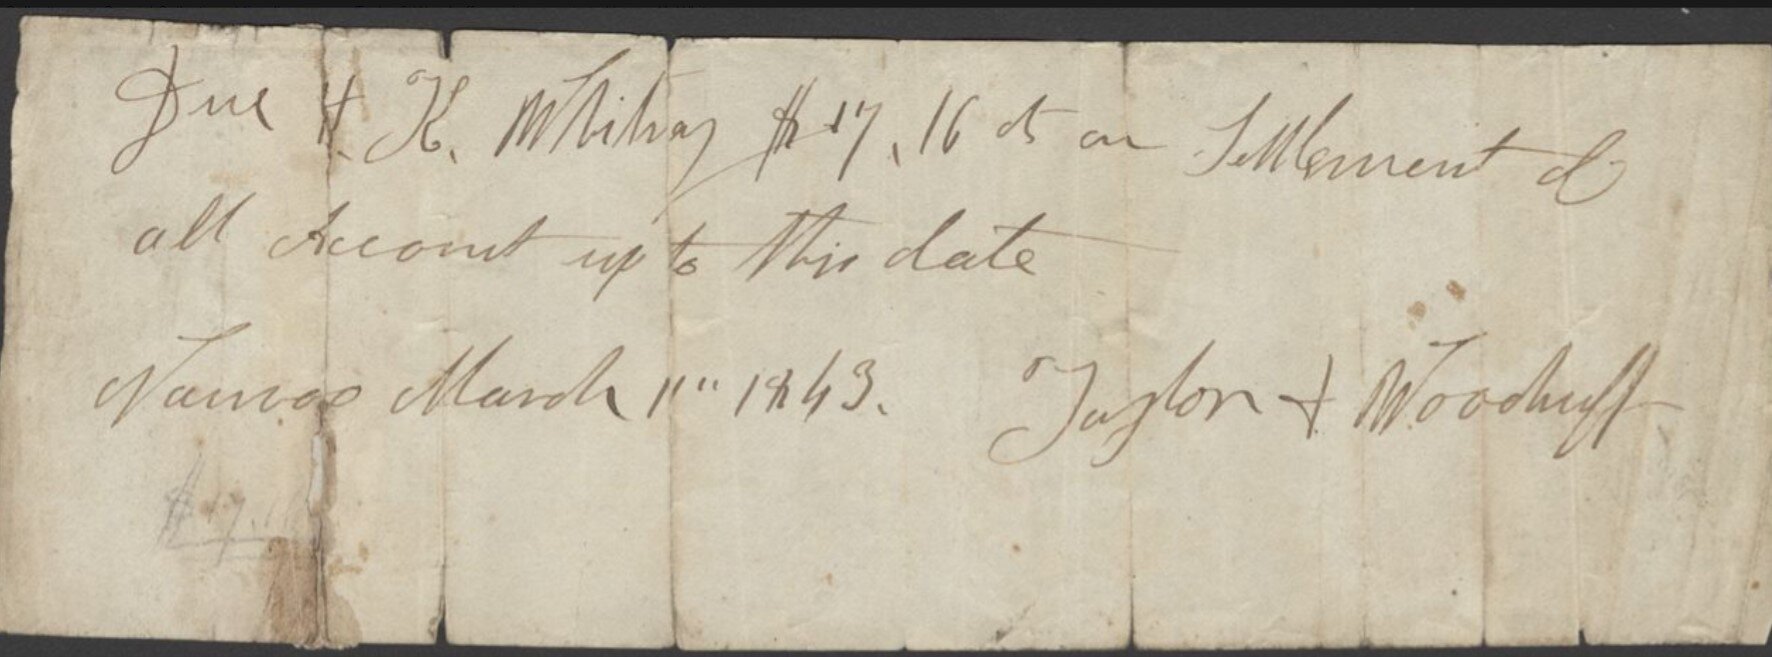 Due H. K. Whitney $17,16 cts on Settlement of
all Account up to this date
Nauvoo March 1" 1843. Taylor & Woodruff
$17.16